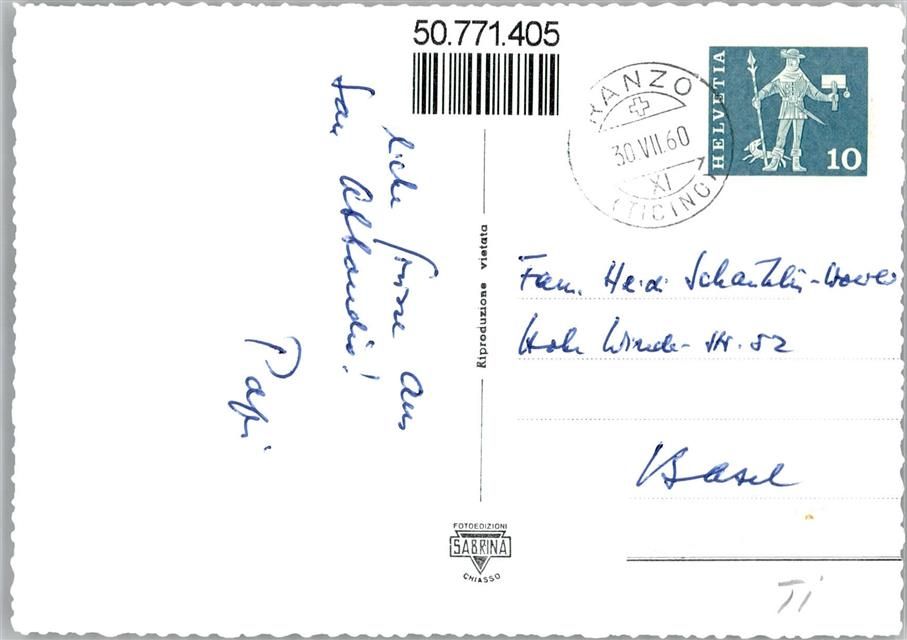 50.771.405
liebe Grüsse aus
San Abbondio!
Papi
Riproduzione vietata
FOTOEDIZIONI
SABRINA
CHIASSO
RANZO
30.VII.60
XI
(TICINO)
HELVETIA
10
Fam. Heidi Schäublin-
Hohe Winde-Str. 52
Basel
Ti